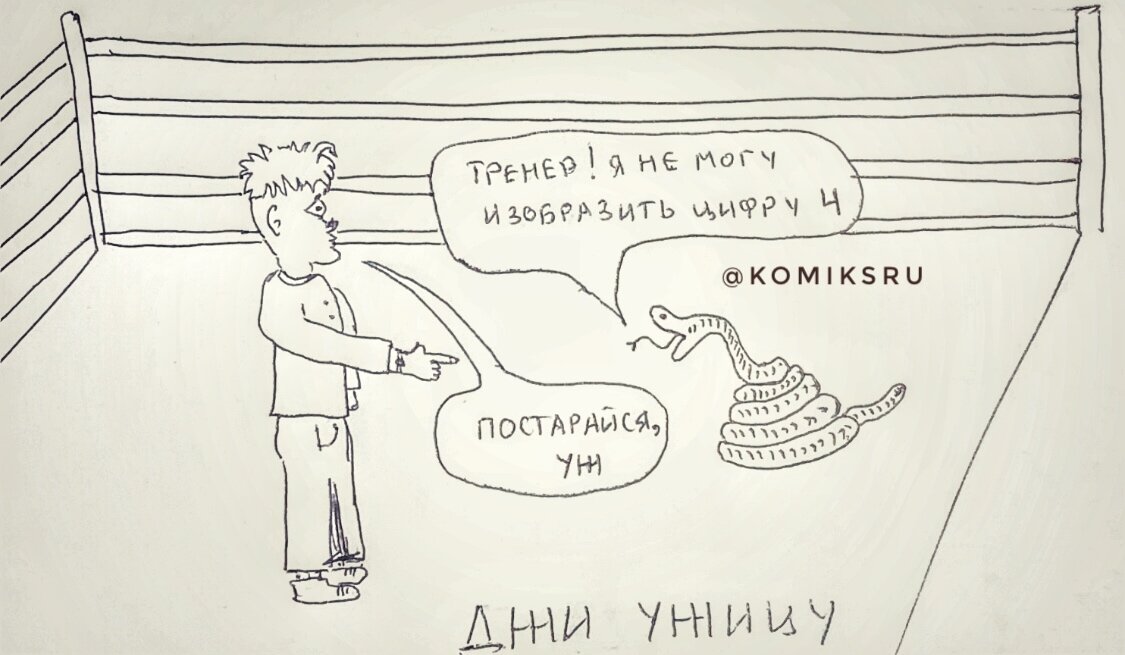 ТРЕНЕР! Я НЕ МОГУ
ИЗОБРАЗИТЬ ЦИФРУ 4
@KOMIKSRU
ПОСТАРАЙСЯ,
УЖ
ДЖИ УЖИЦУ